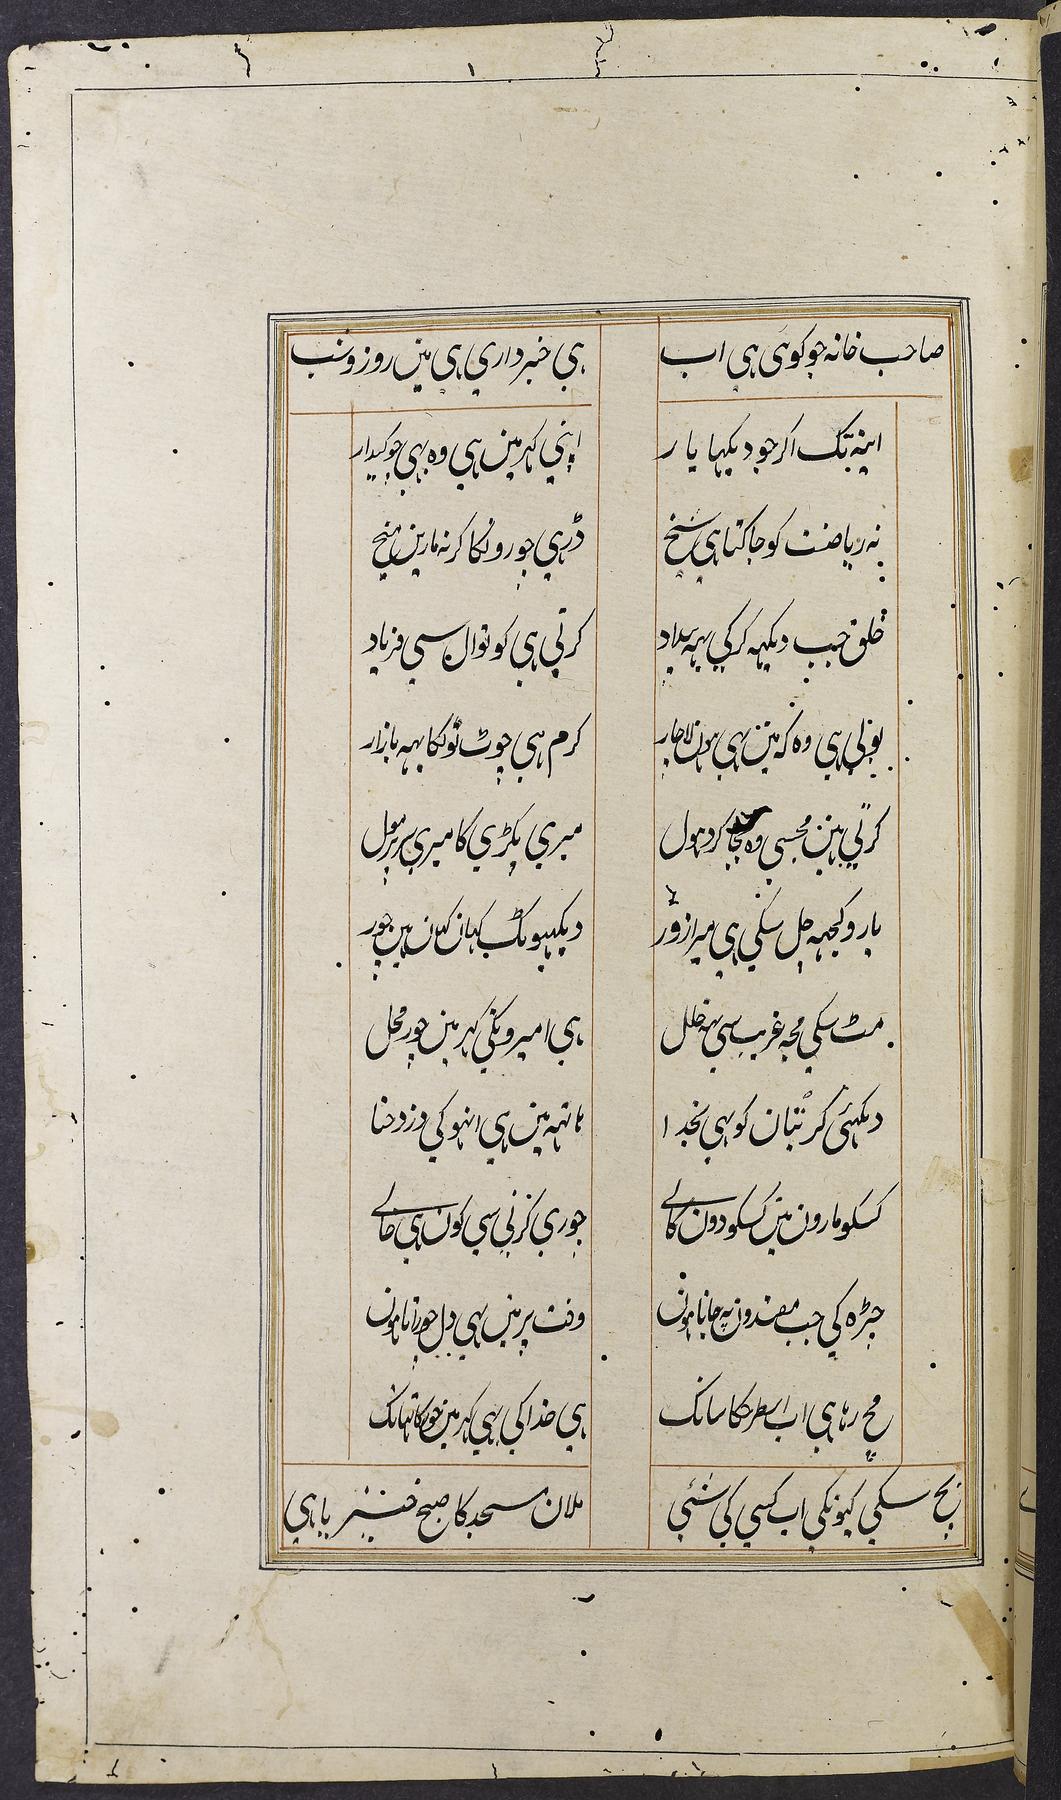 صاحب خانہ جو کوئی ہی اب ہی خبرداری ہی مین روز و شب
اینہ تک اکر جو دیکہا یار اپنی کہر مین ہی وہ بہی چوکیدار
نہ ریاضت کو جاکتا ہی شیخ ڈر ہی چورونکا کر نہ مارین میخ
خلق جب دیکہہ کر کی یہہ بیداد کرتی ہی کوتوال سی فریاد
بولی ہی وہ کہ مین بہی ہون لاچار کرم ہی چوٹٹونکا یہہ بازار
کرتی ہین مجسی وہ بجا کر دہول میری پکڑی کا میری سر پر مول
یارو کچہہ چل سکی ہی میرا زور دیکہیو ٹک کہان کہان ہین چور
مٹ سکی مجہ غریب سی یہہ خلل ہی امیرونکی کہر مین چور محل
دیکہئی کر بتان کو بہی بخدا ہاتہہ مین ہی انہو کی دزد حنا
کسکو مارون مین کسکو دون کالی چوری کرنی سی کون ہی خالی
چڑہ کی جب مفسدون پہ جاتا ہون وقت پر مین بہی دل چوراتا ہون
مچ رہا ہی اب اسطرحکا سانک ہی خدا کی بہی کہر مین چورکا تہانک
بچ سکی کیونکی اب کسی کی شئی ملان مسجد کا صبح خیزیا ہی